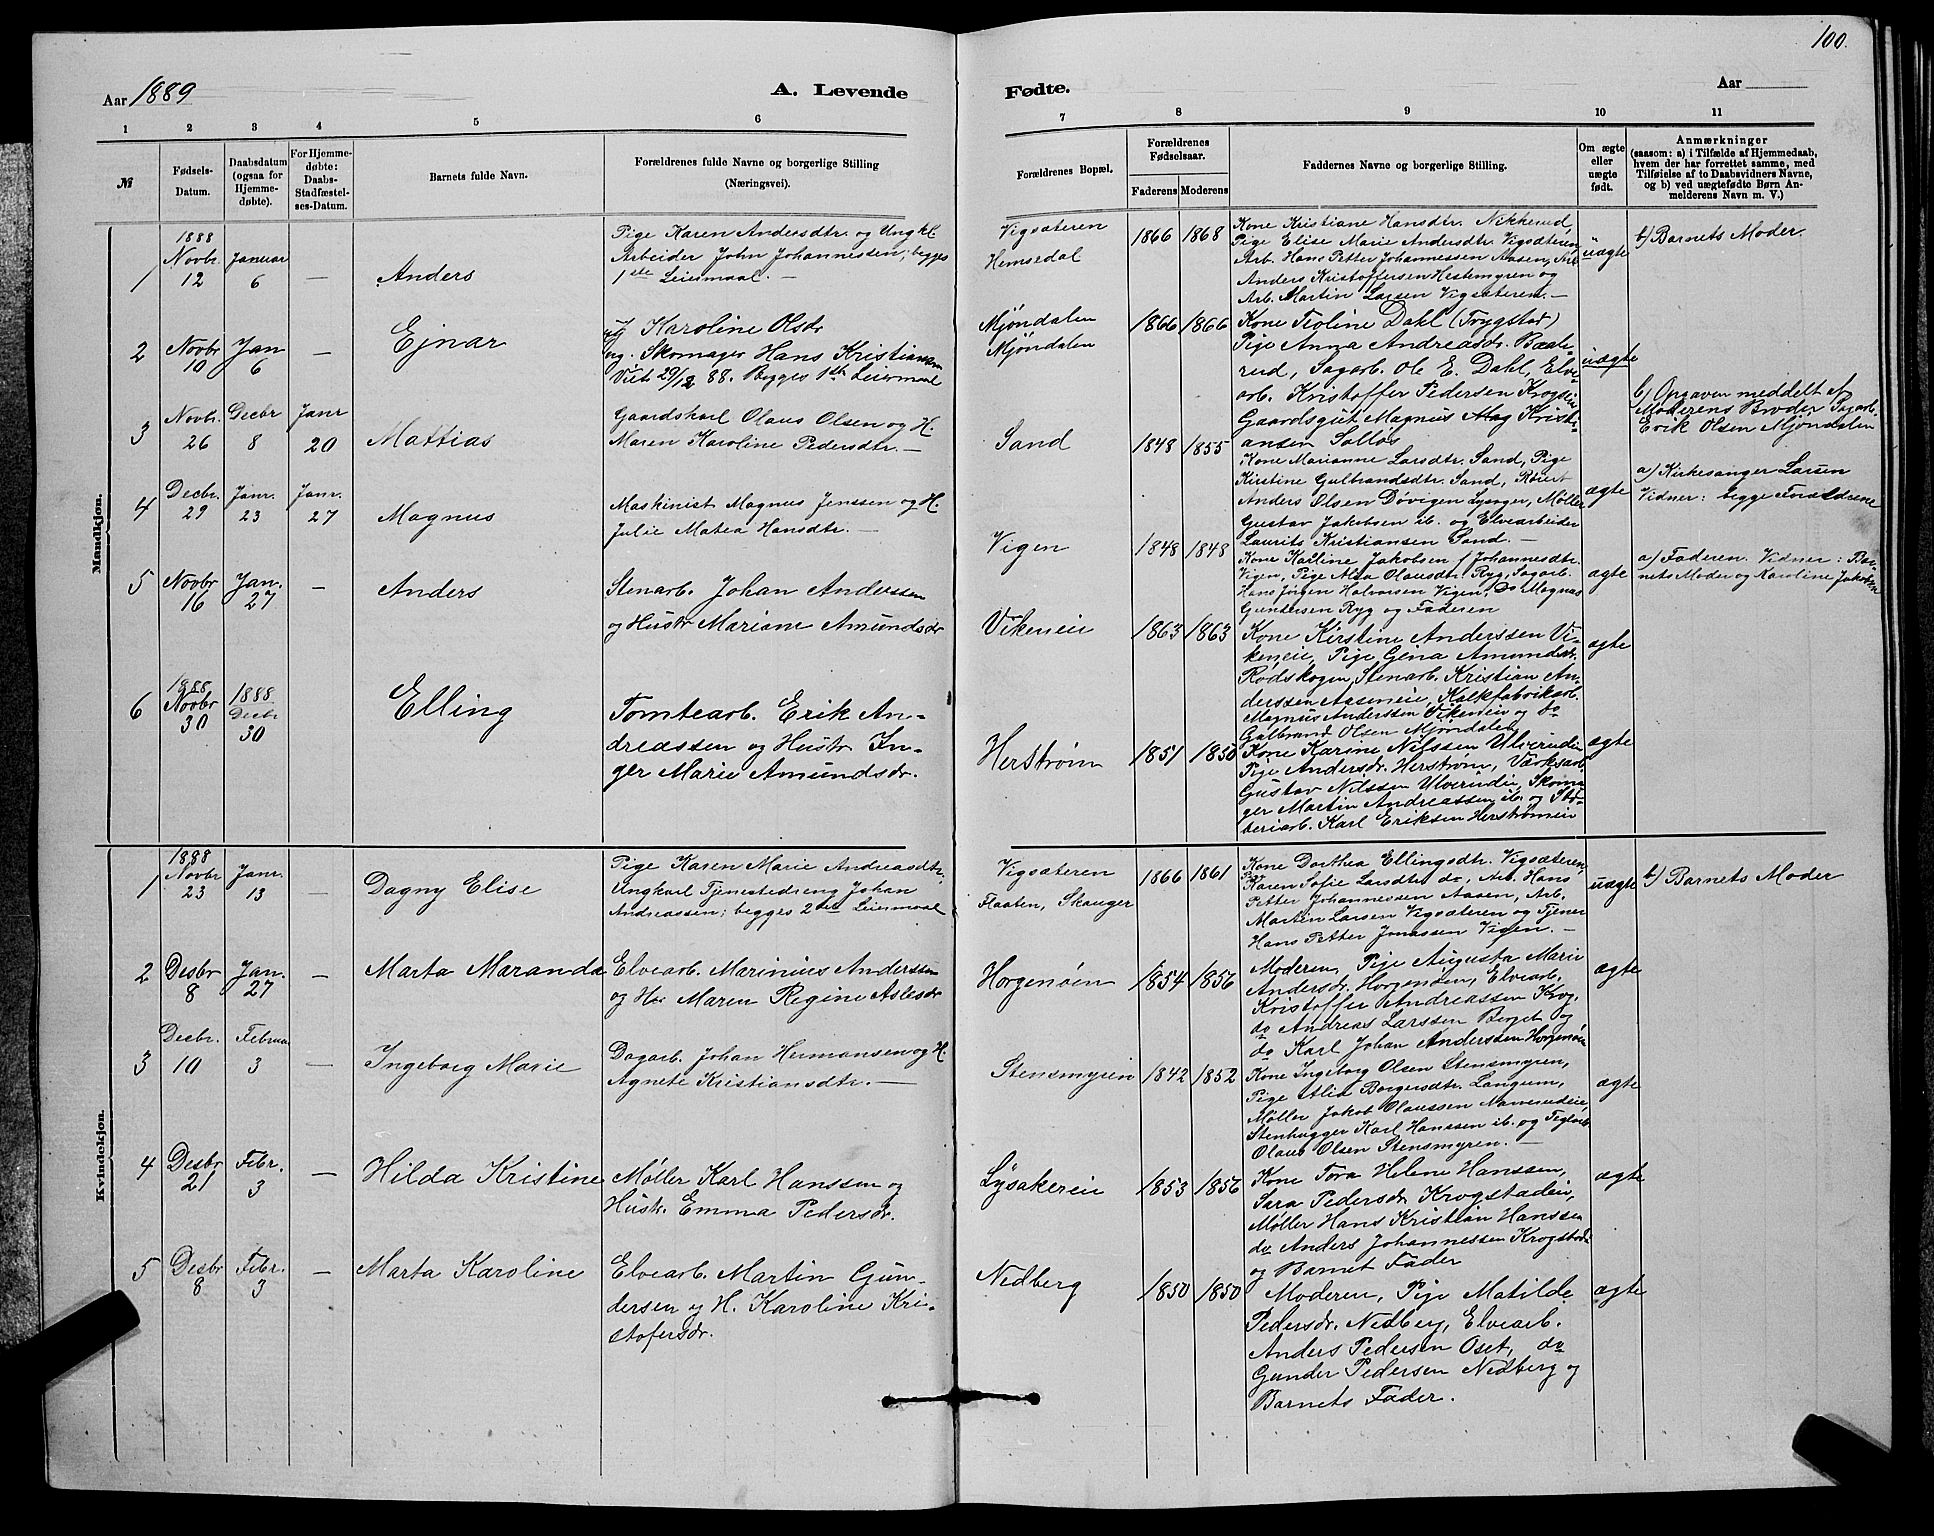 100.
Aar 1889
A. Levende
Fødte.
Aar
1 2 3 4 5 6 7 8 9 10 11
№
Fødsels-
Datum.
Daabsdatum
(ogsaa for
Hjemme-
døbte).
For Hjemme-
døbte:
Daabs-
Stadfæstel-
ses-Datum.
Barnets fulde Navn.
Forældrenes fulde Navne og borgerlige Stilling
(Næringsvei).
Forældrenes Bopæl.
Forældrenes
Fødselsaar.
Faderens Moderens
Faddernes Navne og borgerlige Stilling.
Om ægte
eller
uægte
født.
Anmærkninger
(saasom: a) i Tilfælde af Hjemmedaab,
hvem der har forrettet samme, med
Tilføielse af to Daabsvidners Navne,
og b) ved uægtefødte Børn An-
melderens Navn m. V.)
Mandkjøn.
1
1888
Novbr.
12
Januar
6
—
Anders
Pige Karen Andersdtr. og Ungkl.
Arbeider John Johannessen, begges
1ste Leiermaal. —
Vigsæteren
Hemsedal
1866 1868
Kone Kristiane Hansdtr. Nikkerud,
Pige Elise Marie Andersdtr. Vigsæteren,
Arb. Hans Petter Johannessen Aasen, Arb.
Anders Kristoffersen Hestemyren og
Arb. Martin Larsen Vigsæteren. —
uægte
b) Barnets Moder.
2
Novbr
10
Jan
6
—
Ejnar
Karoline Olsdr
Ung. Skomager Hans Kristiansen
Vielt 29/12 88. Begges 1ste Leiermaal
Mjøndalen
Mjøndalen
1866 1866
Kone Teoline Dahl (Trygstad)
Pige Anna Andreasdr. Baate-
rud, Sagarb. Ole E. Dahl, Elve-
arb. Kristoffer Pedersen Krogsei
Gaardsgut Magnus Kristi-
ansen Solløs
uægte
b) Opgaven meddelt af
Moderens Broder Sagarb.
Erik Olsen Mjøndalen
3
Novbr.
26
Decbr
8
Janr
20
Mattias
Gaardskarl Olaus Olsen og H.
Maren Karoline Pedersdtr. —
Sand
1848 1855
Kone Marianne Larsdtr. Sand, Pige
Kirstine Gulbrandsdtr. Sand, Røiert
Anders Olsen Døvigen Lysger, Møller
Gustav Jakobsen ib. og Elvearbeider
Laurits Kristiansen Sand. —
ægte
a) Kirkesanger Larsen
Vidner: begge Forældrene
4
Decbr.
29
Janr.
23
Janr.
27
Magnus
Maskinist Magnus Jenssen og H.
Julie Matea Hansdtr. —
Vigen
1848 1848
Kone Karline Jakobsen / Johannesdtr.
Vigen, Pige Alsa Olausdtr. Ryg, Sagarb.
Hans Jørgen Halvorsen Vigen, Do Magnus
Gundersen Ryg og Faderen
ægte
a) Faderen. Vidner: Bar-
nets Moder og Karoline Jakobsen
5
Novbr
16
Jan.
27
—
Anders
Stenarb. Johan Anderssen
og Hustr Mariane Amundsdr
Vikeneie
1863 1863
Kone Kirstine Anderssen Vi-
keneie, Pige Gina Amundsdr.
Rødskogen, Stenarb. Kristian An-
derssen Aaseneie, Kalkfabrikarb.
Magnus Anderssen Vikeneie og do
Gulbrand Olsen Mjøndalen
ægte
6
1888
Novbr
30
1888
Decbr
30
Elling
Tomtearb. Erik An-
dreassen og Hustr. In-
ger Marie Amundsdr.
Herstrøm
1851 1850
Kone Karine Nilssen Ulverudeie
Pige Andersdr. Herstrøm, Værksarb.
Gustav Nilssen Ulverudeie, Skoma-
ger Martin Andreassen ib. og Stø-
beriarb. Karl Eriksen Herstrømeie
ægte
Kvindekjøn.
1
1888
Novbr
23
Janr.
13
—
Dagny Elise
Pige Karen Marie Andreasdtr.,
Ungkarl Tjenestedreng Johan
Andreassen; begges 2det Leiermaal
Vigsæteren
Flaaten, Skauger
1866 1861
Kone Dorthea Ellingsdtr. Vigsæteren,
Karen Sofie Larsdtr. do, Arb. Hans
Petter Johannessen Aasen, Arb.
Martin Larsen Vigsæteren og Tjener
Hans Petter Jonassen Vigen. —
uægte
b) Barnets Moder
2
Desbr
8
Jan.
27
—
Marta Maranda
Elvearb. Marinius Anderssen
og Hu Maren Regine Aslesdr
Horgenøen
1854 1856
Moderen, Pige Augusta Marie
Andersdr. Horgenøen, Elvearb.
Kristoffer Andreassen Krog,
do Andreas Larssen Berget og
do Karl Johan Anderssen Horgenøen
ægte
3
Decbr.
10
Februar
3
—
Ingeborg Marie
Dagarb. Johan Hermansen og H.
Agnete Kristiansdtr. —
Stensmyren
1842 1852
Kone Ingeborg Olsen Stensmyren,
Pige Alid Borgersdtr. Langum,
Møller Jakob Olaussen Narverudeie,
Stenhugger Karl Hanssen ib. og Teglarb.
Olaus Olsen Stensmyren. —
ægte
4
Desbr
21
Febr.
3
—
Hilda Kristine
Møller Karl Hanssen og
Hustr. Emma Pedersdr.
Lysakereie
1853 1856
Kone Tora Helene Hanssen,
Sara Pedersdr Krogstadeie,
Møller Hans Kristian Hanssen
do Anders Johannessen Krogstade
og Barnet Fader
ægte
5
Desbr
8
Febr.
3
—
Marta Karoline
Elvearb. Martin Gun-
dersen og H. Karoline Kri-
stofersdr.
Nedberg
1850 1850
Moderen, Pige Matilde
Pedersdr. Nedberg, Elvearb.
Anders Pedersen Oset, do
Gunder Pedersen Nedberg og
Barnets Fader.
ægte